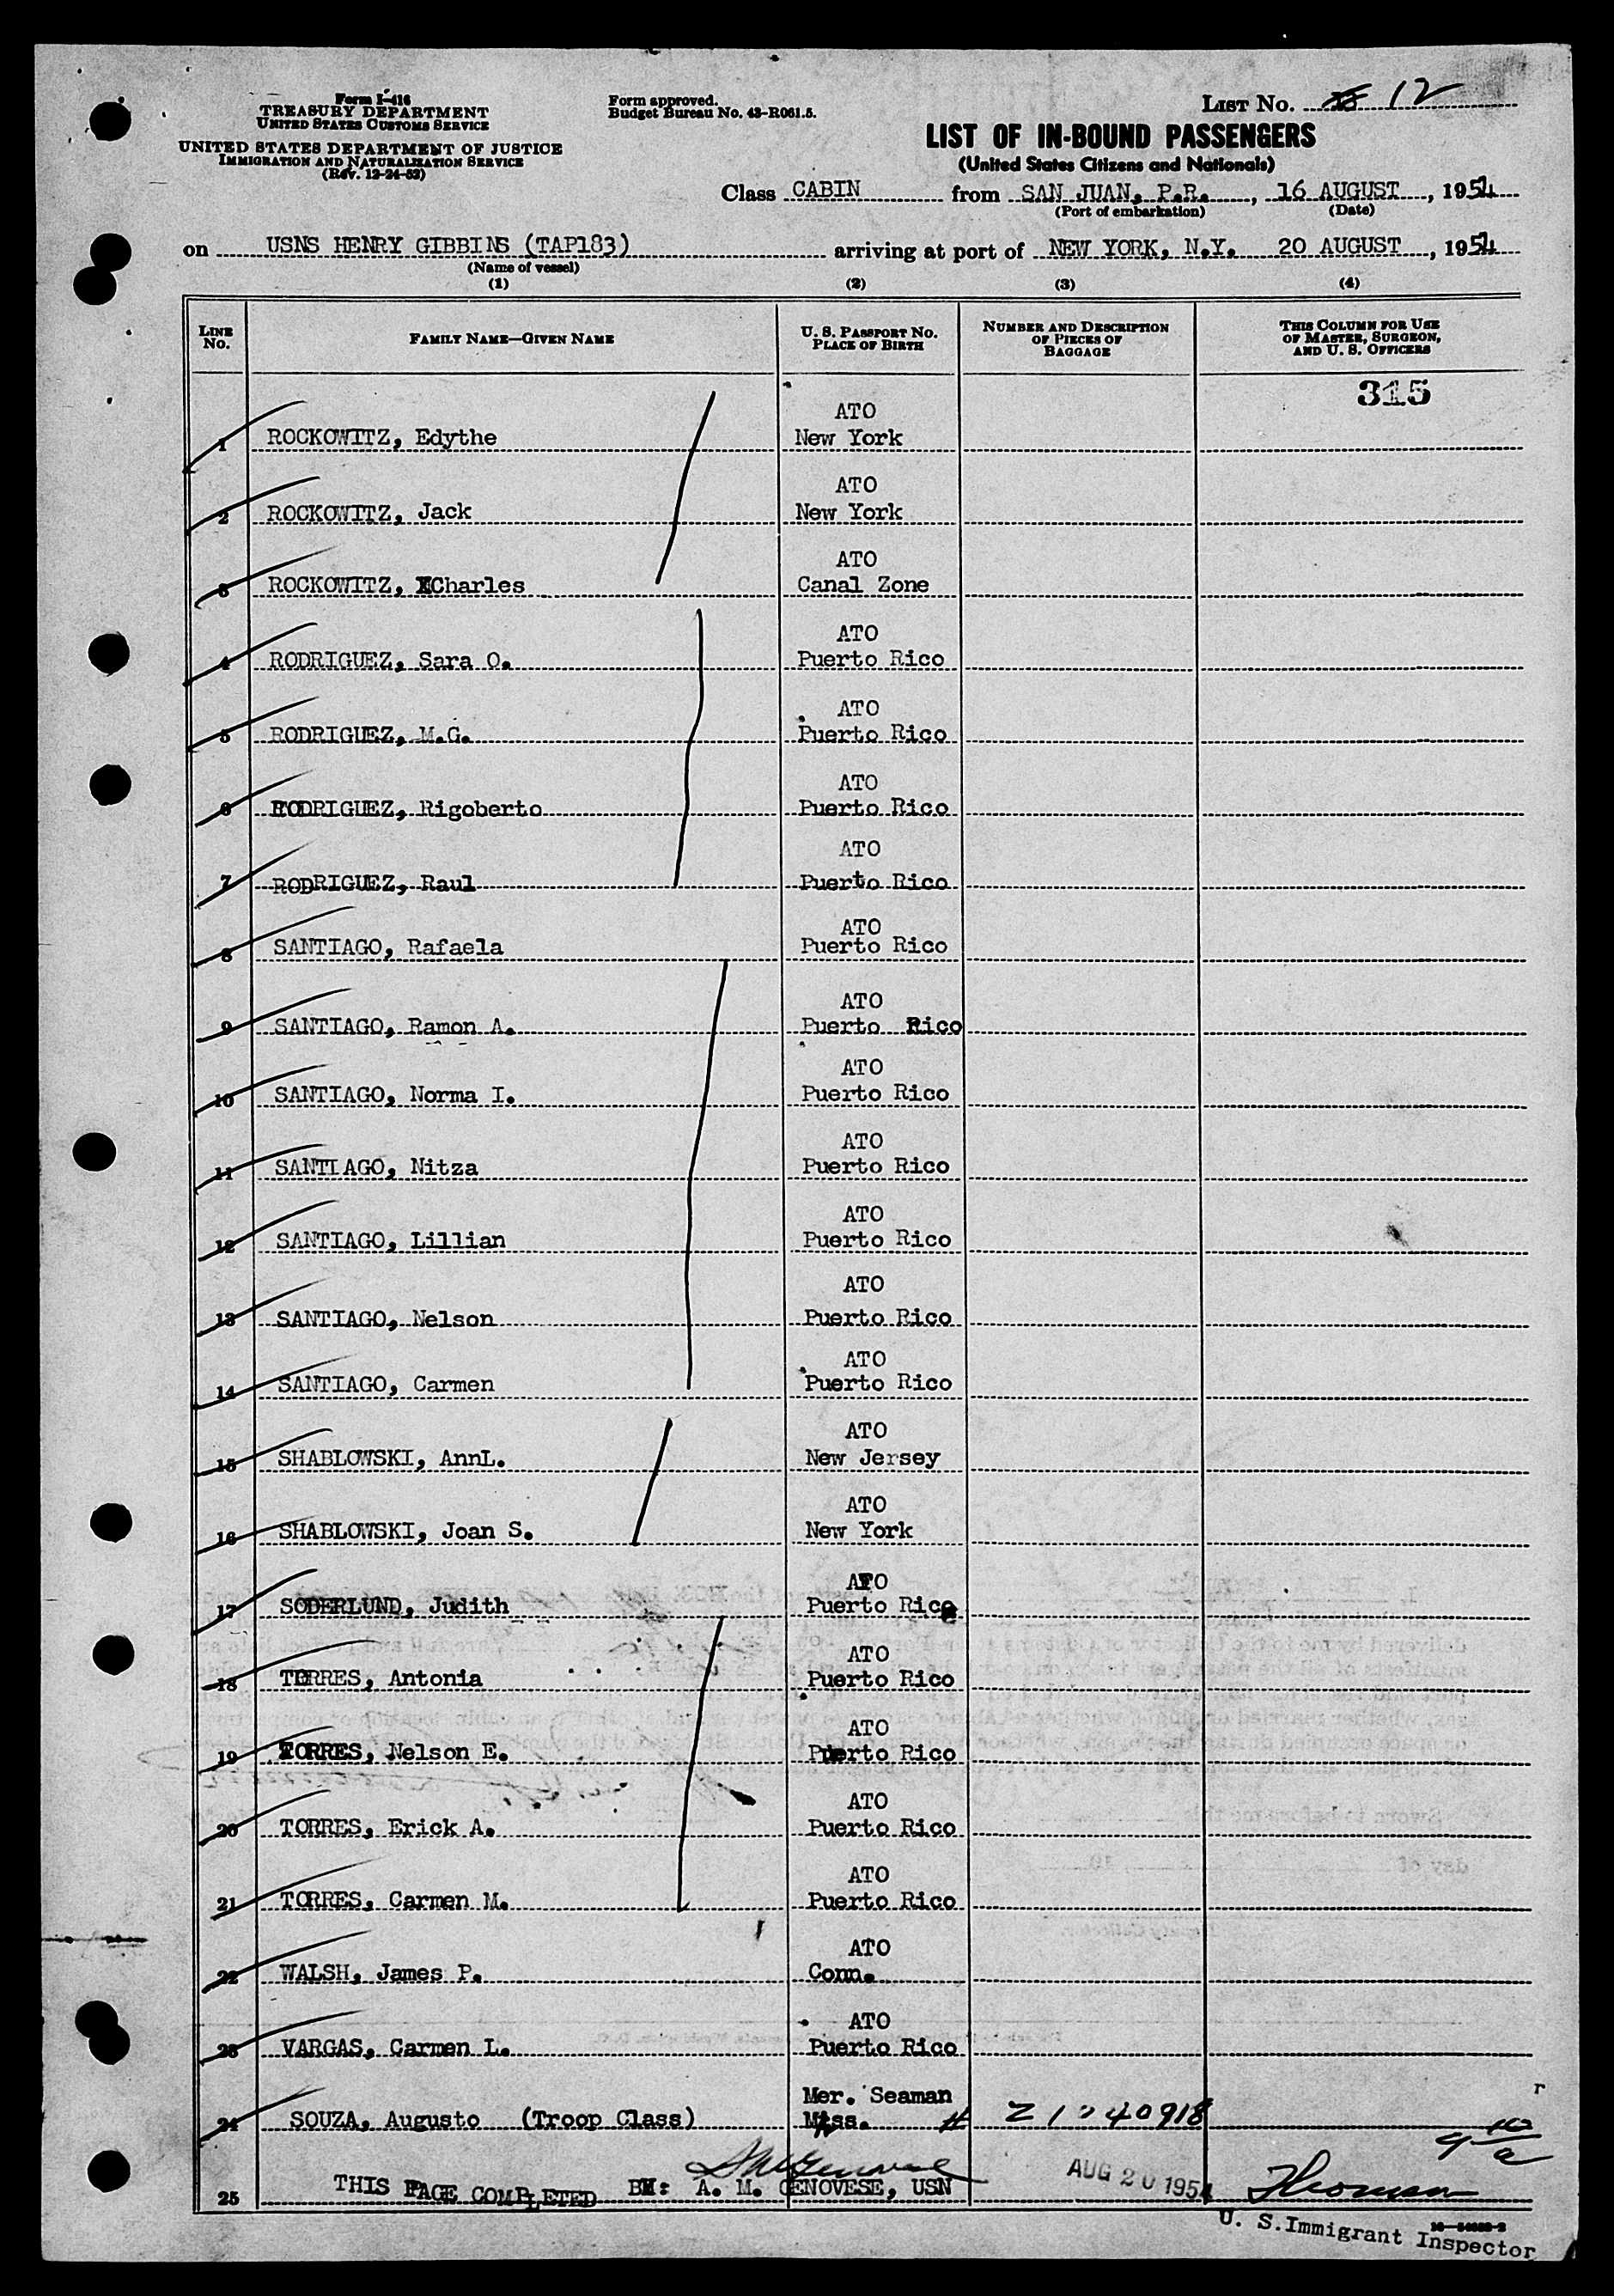 Form I-416
TREASURY DEPARTMENT
UNITED STATES CUSTOMS SERVICE
UNITED STATES DEPARTMENT OF JUSTICE
IMMIGRATION AND NATURALIZATION SERVICE
(Rev. 12-24-52)
Form approved.
Budget Bureau No. 43-R061.5.
LIST No. 12
LIST OF IN-BOUND PASSENGERS
(United States Citizens and Nationals)
Class CABIN from SAN JUAN, P.R., 16 AUGUST, 1954
(Port of embarkation) (Date)
on USNS HENRY GIBBINS (TAP183) arriving at port of NEW YORK, N.Y. 20 AUGUST, 1954
(Name of vessel)
(1) (2) (3) (4)
LINE No.
FAMILY NAME—GIVEN NAME
U. S. PASSPORT NO.
PLACE OF BIRTH
NUMBER AND DESCRIPTION
OF PIECES OF
BAGGAGE
THIS COLUMN FOR USE
OF MASTER, SURGEON,
AND U. S. OFFICERS
315
ATO
1 ROCKOWITZ, Edythe New York
ATO
2 ROCKOWITZ, Jack New York
ATO
3 ROCKOWITZ, Charles Canal Zone
ATO
4 RODRIGUEZ, Sara O. Puerto Rico
ATO
5 RODRIGUEZ, M.G. Puerto Rico
ATO
6 RODRIGUEZ, Rigoberto Puerto Rico
ATO
7 RODRIGUEZ, Raul Puerto Rico
ATO
8 SANTIAGO, Rafaela Puerto Rico
ATO
9 SANTIAGO, Ramon A. Puerto Rico
ATO
10 SANTIAGO, Norma I. Puerto Rico
ATO
11 SANTIAGO, Nitza Puerto Rico
ATO
12 SANTIAGO, Lillian Puerto Rico
ATO
13 SANTIAGO, Nelson Puerto Rico
ATO
14 SANTIAGO, Carmen Puerto Rico
ATO
15 SHABLOWSKI, AnnL. New Jersey
ATO
16 SHABLOWSKI, Joan S. New York
ATO
17 SODERLUND, Judith Puerto Rico
ATO
18 TORRES, Antonia Puerto Rico
ATO
19 TORRES, Nelson E. Puerto Rico
ATO
20 TORRES, Erick A. Puerto Rico
ATO
21 TORRES, Carmen M. Puerto Rico
ATO
22 WALSH, James P. Conn.
ATO
23 VARGAS, Carmen L. Puerto Rico
Mer. Seaman
24 SOUZA, Augusto (Troop Class) Mass.
25 THIS PAGE COMPLETED BY: A. M. GENOVESE, USN AUG 20 1954
U. S. Immigrant Inspector